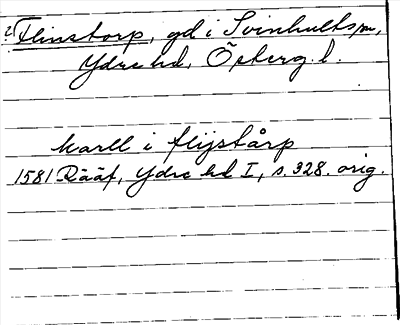 2) Flinstorp, gd i Svinhults sn,
Ydre hd, Österg. l.
Karll i flijstårp
1581 Rääf, Ydre hd I, s. 328. orig.